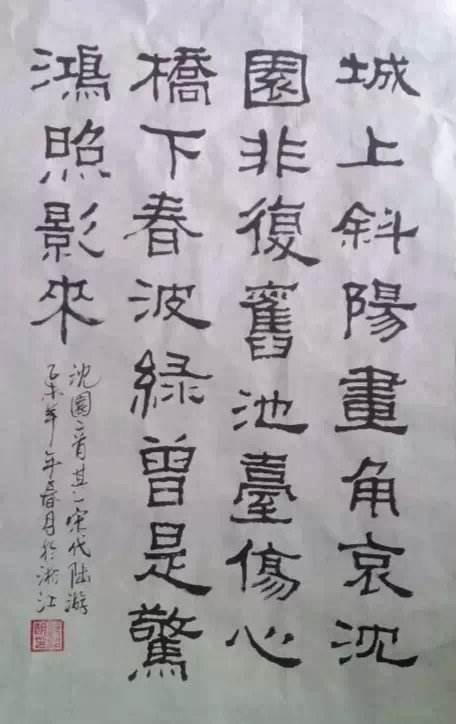 城上斜陽畫角哀沈
園非復舊池臺傷心
橋下春波綠曾是驚
鴻照影來
沈園二首其一宋代陸游
乙未羊年春月於浙江